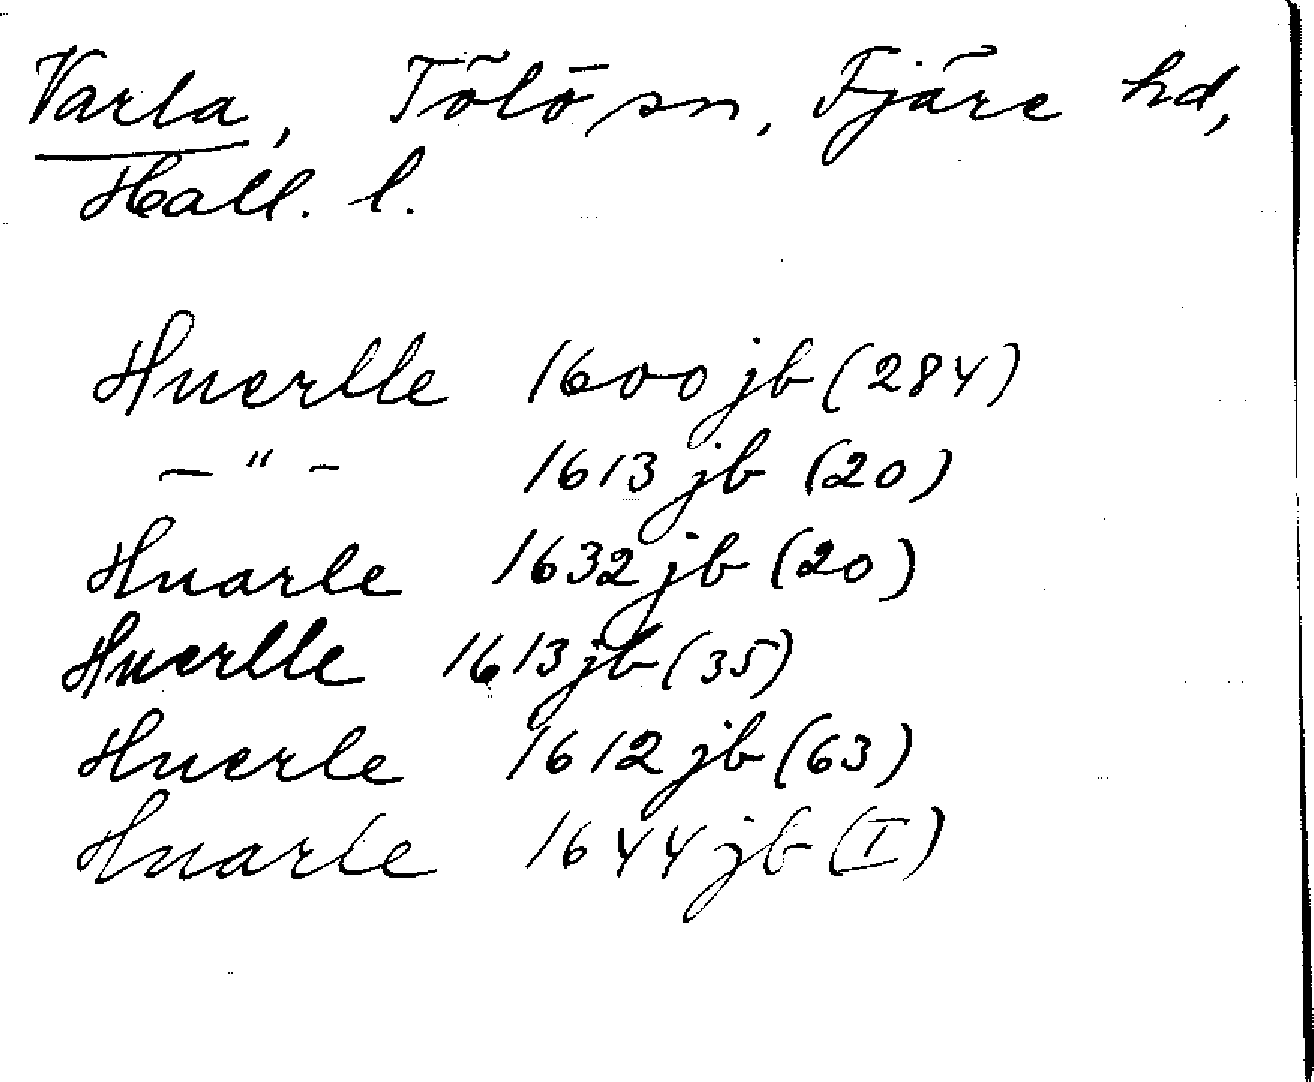 Varla, Tölö sn, Fjäre hd,
Hall. l.
Huerlle 1600 jb (284)
— " — 1613 jb (20)
Huarle 1632 jb (20)
Huerlle 1613 jb (35)
Huerle 1612 jb (63)
Huarle 1644 jb (I)